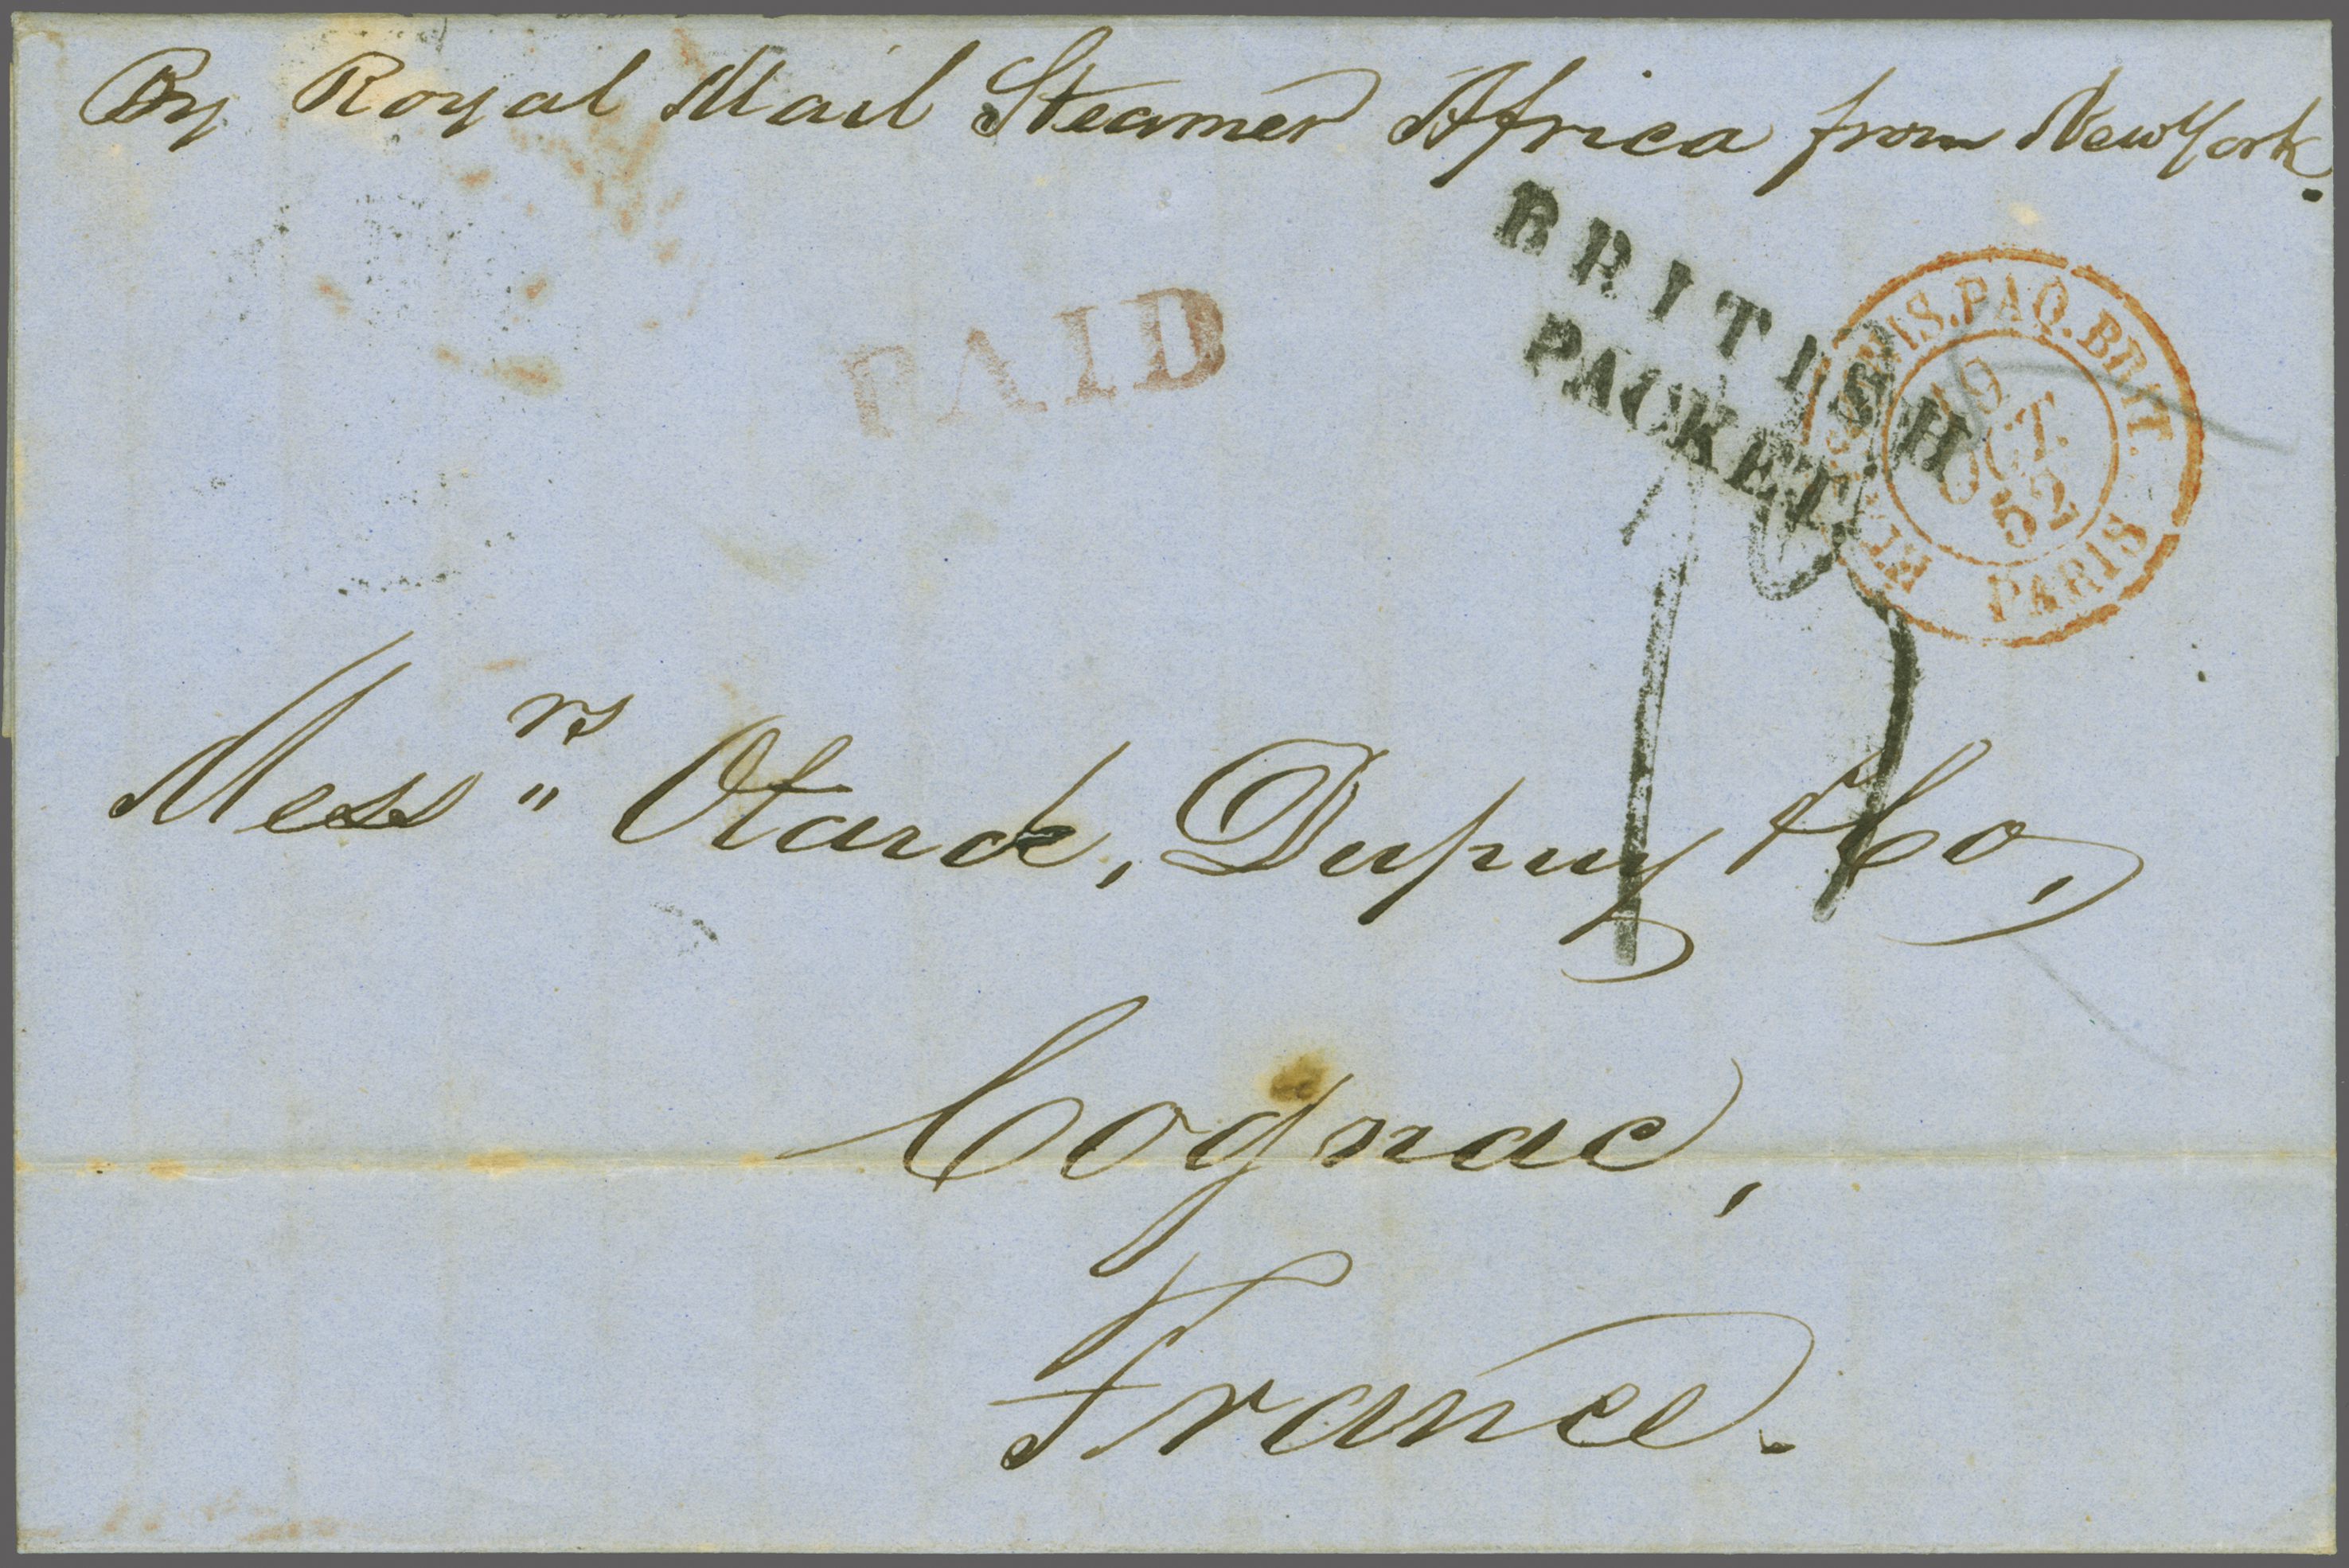 By Royal Mail Steamer Africa from New York.
PAID
BRITISH
PACKET
ET.UNIS.PAQ.BRIT.
PARIS
Mess.rs Otard, Dupuy & Co,
Cognac,
France.